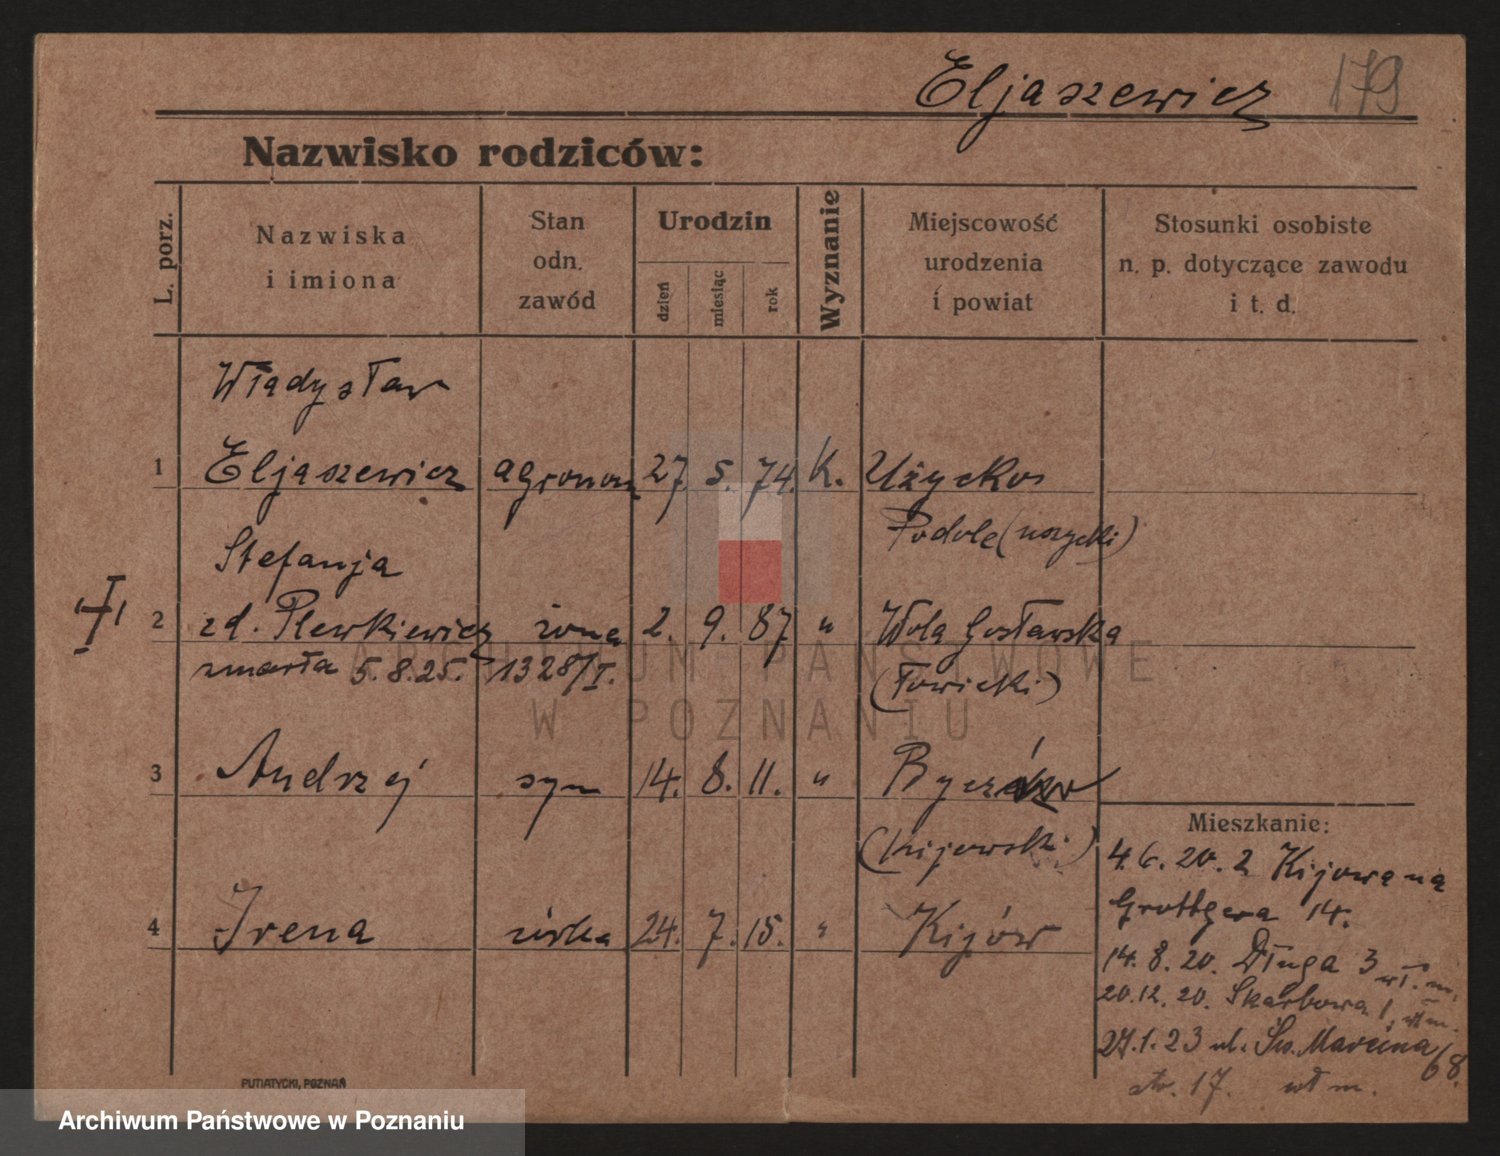 Eljaszewicz 179
Nazwisko rodziców:
L. porz.
Nazwiska
i imiona
Stan
odn.
zawód
Urodzin
dzień
miesiąc
rok
Wyznanie
Miejscowość
urodzenia
i powiat
Stosunki osobiste
n. p. dotyczące zawodu
i t. d.
Władysław
1 Eljaszewicz agronom 27 5. 74. K.
Podole
Stefanja
2 zd. Plewkiewicz żona 2. 9. 87 " Wola Gosławska
zmarła 5.8.25. 1328/I. (Łowicki)
3 Andrzej syn 14. 8. 11. "
(Kijowski)
4 Irena córka 24. 7. 15. " Kijów
Mieszkanie:
4.6.20. z Kijowa na
Grottgera 14.
14.8.20. Długa 3 wł. m.
20.12.20. Skarbowa 1, wł m.
27.1.23 ul. Św. Marcina 68.
17. wł m.
PUTIATYCKI, POZNAŃ
ARCHIWUM PAŃSTWOWE
W POZNANIU
Archiwum Państwowe w Poznaniu